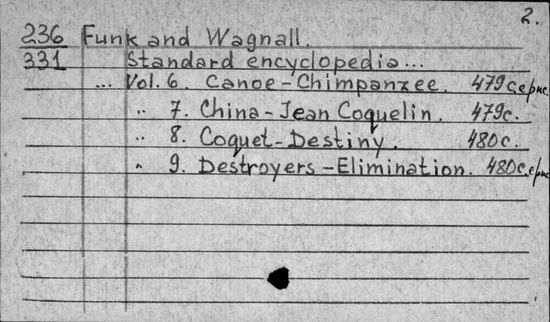 2.
236 Funk and Wagnall.
331 Standard encyclopedia...
... Vol. 6. Canoe-Chimpanzee. 479с.с рис.
" 7. China-Jean Coquelin. 479с.
" 8. Coquet-Destiny. 480с.
" 9. Destroyers-Elimination. 480с.с рис.